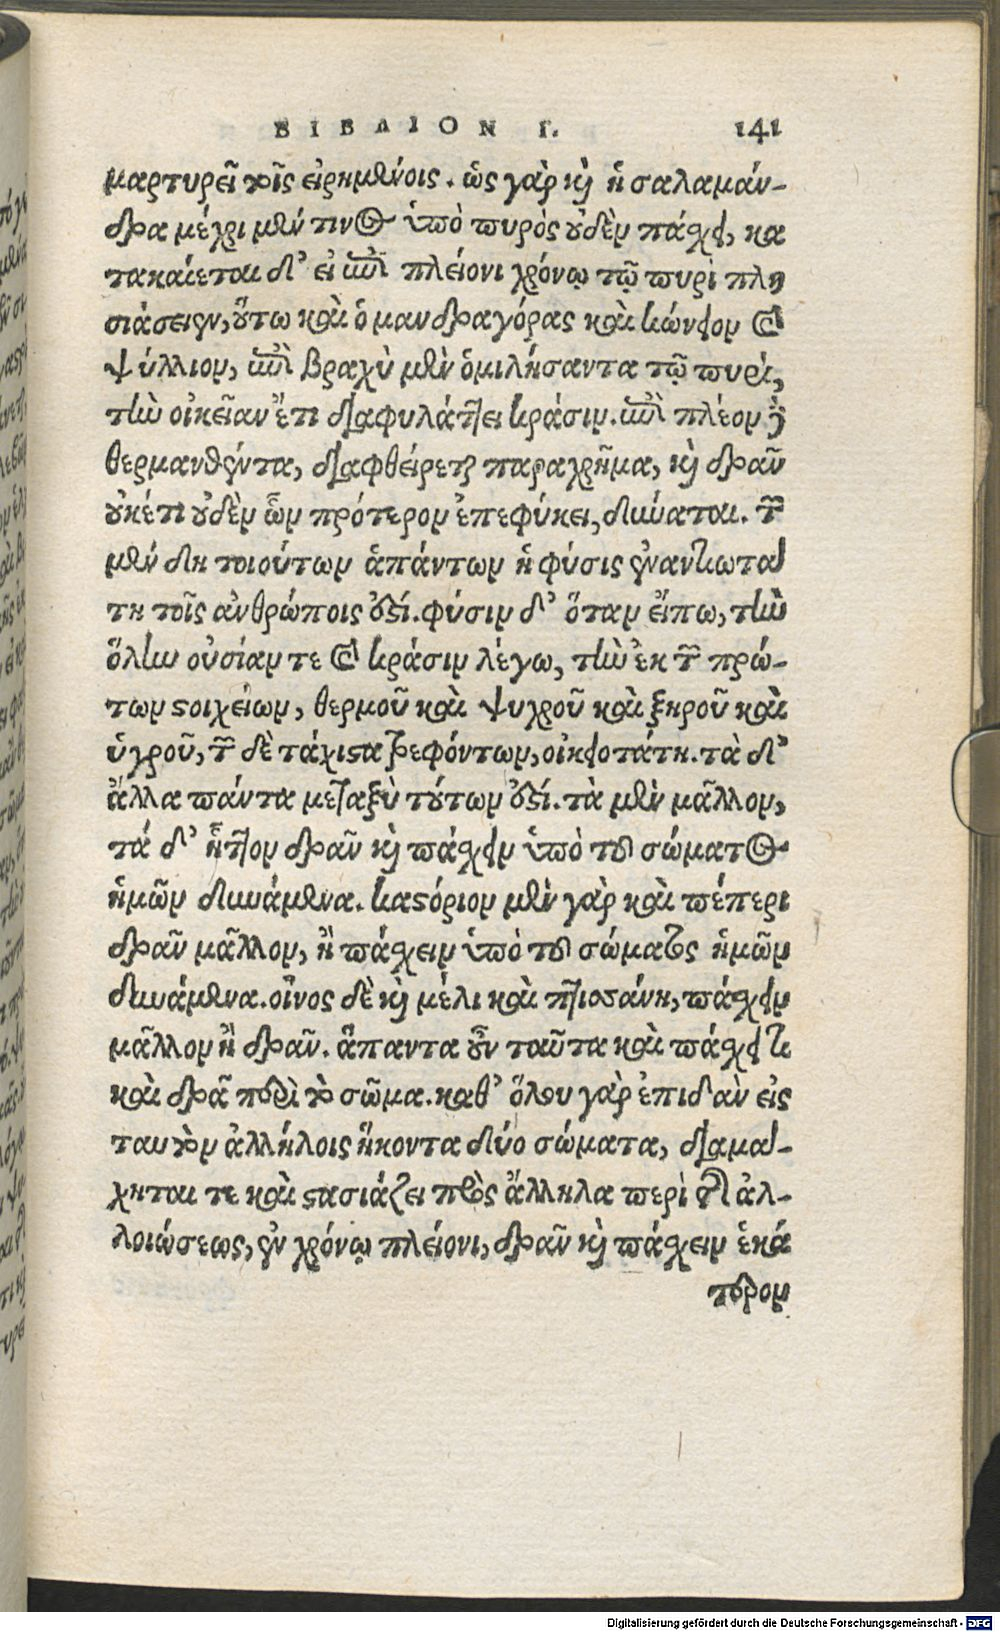 ΒΙΒΛΙΟΝ Γ. 141
μαρτυρεῖ τοῖς εἰρημένοις. ὡς γὰρ καὶ ἡ σαλαμάν-
δρα μέχρι μέν τινος ὑπὸ πυρὸς οὐδὲν πάσχει, κα
τακαίεται δ’ εἰ ἐπὶ πλείονι χρόνῳ τῷ πυρὶ πλη
σιάσειεν, οὕτω καὶ ὁ μανδραγόρας καὶ κώνειον καὶ
ψύλλιον, ἐπὶ βραχὺ μὲν ὁμιλήσαντα τῷ πυρὶ,
τὴν οἰκείαν ἔτι διαφυλάττει κράσιν. ἐπὶ πλέον δὲ
θερμανθέντα, διαφθείρεται παραχρῆμα, καὶ δρᾶν
οὐκέτι οὐδὲν ὧν πρότερον ἐπεφύκει, δύναται. τῶν
μὲν δὴ τοιούτων ἁπάντων ἡ φύσις ἐναντιωτά
τη τοῖς ἀνθρώποις ἐστί. φύσιν δ’ ὅταν εἴπω, τὴν
ὅλην οὐσίαν τε καὶ κράσιν λέγω, τὴν ἐκ τῶν πρώ-
των στοιχείων, θερμοῦ καὶ ψυχροῦ καὶ ξηροῦ καὶ
ὑγροῦ, τῶν δὲ τάχιστα τρεφόντων, οἰκειοτάτη. τὰ δ’
ἄλλα πάντα μεταξὺ τούτων ἐστί. τὰ μὲν μᾶλλον,
τά δ’ ἧττον δρᾶν καὶ πάσχειν ὑπὸ τοῦ σώματος
ἡμῶν δυνάμενα. καστόριον μὲν γὰρ καὶ πέπερι
δρᾶν μᾶλλον, ἢ πάσχειν ὑπὸ τοῦ σώματος ἡμῶν
δυνάμενα. οἶνος δὲ καὶ μέλι καὶ πτισάνη, πάσχειν
μᾶλλον ἢ δρᾶν. ἅπαντα οὖν ταῦτα καὶ πάσχει τι
καὶ δρᾷ περὶ τὸ σῶμα. καθ’ ὅλου γὰρ ἐπειδὰν εἰς
ταυτὸν ἀλλήλοις ἥκοντα δύο σώματα, διαμά-
χηται τε καὶ στασιάζει πρὸς ἄλληλα περὶ τῆς ἀλ-
λοιώσεως, ἐν χρόνῳ πλείονι, δρᾶν καὶ πάσχειν ἑκά
τερον
Digitalisierung gefördert durch die Deutsche Forschungsgemeinschaft - DFG